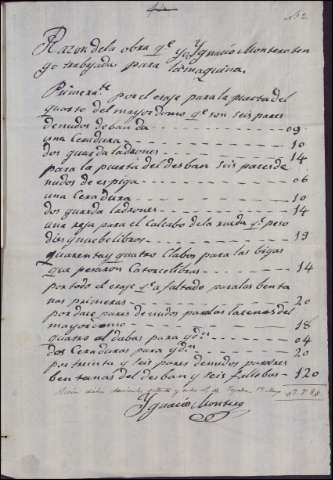 Nº 2
Razon dela obra qe. Yo Ygnacio Montero ten
go trabajada para la maquina.
Primeramte. por el eraje para la puerta del
quarto del mayordomo qe. son seis pares
de nudos de banda - - - 09
una Ceradura - - - 10
dos guarda ladrones - - - 14
para la puerta del desban seis pares de
nudos de espiga - - - 06
una Ceradura - - - 10
dos guarda ladrones - - - 14
una reja para el Calcabo de la rueda qe. peso
dies y nuebe libras - - - 19
quarenta y quatro Clabos para las bigas
que pesaron Catorce libras - - - 14
por todo el eraje qe. a faltado para las benta
nas primeras - - - 20
por doce pares de nudos para las senas del
mayordomo - - - 18
quatro aldabas para ydn. - - - 04
dos Ceraduras para ydn. - - - 20
por treinta y seis pares de nudos para tres
bentanas del desban y seis fallebas - - 120
Ygnacio Montero